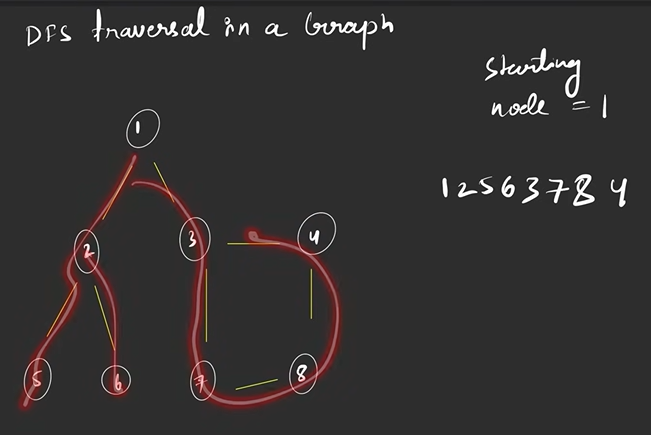 DFS traversal in a Graph
Starting
node = 1
1 2 5 6 3 7 8 4
1
2
3
4
5
6
7
8